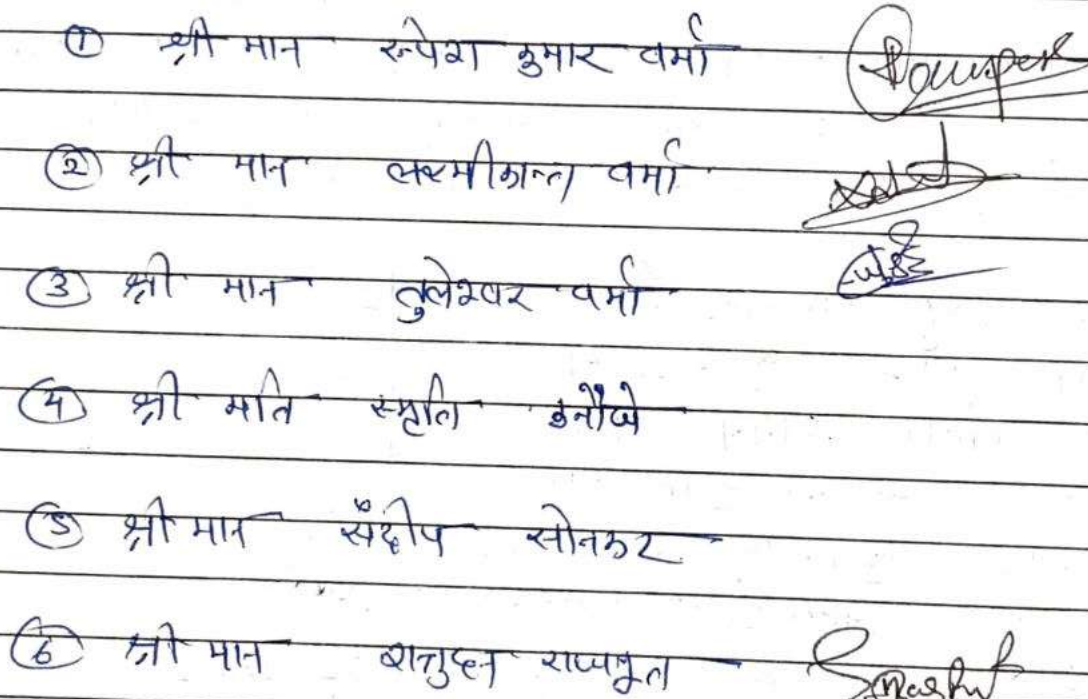 ① श्री मान रूपेश कुमार वर्मा
② श्री मान लक्ष्मीकान्त वर्मा
③ श्री मान तुलेश्वर वर्मा
④ श्री मति स्मृति कनौजे
⑤ श्री मान संदीप सोनकर
⑥ श्री मान शत्रुहन राजपूत